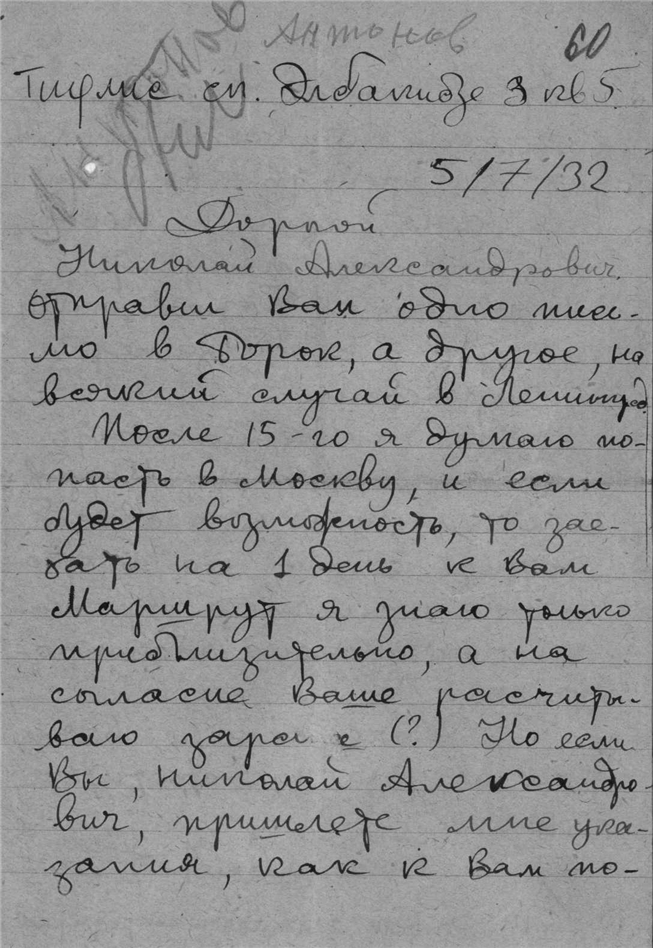 Антонов
60
Тифлис сп. Элбакидзе 3 кв 5.
5/7/32
Дорогой
Николай Александрович.
отправил Вам одно пись-
мо в Борок, а другое, на
всякий случай в Ленинград
После 15-го я думаю по-
пасть в Москву, и если
будет возможность, то зае-
хать на 1 день к Вам
Маршрут я знаю только
приблизительно, а на
согласие Ваше расчиты-
ваю заранее (?) Но если
Вы, Николай Александро-
вич, пришлете мне ука-
зания, как к Вам по-